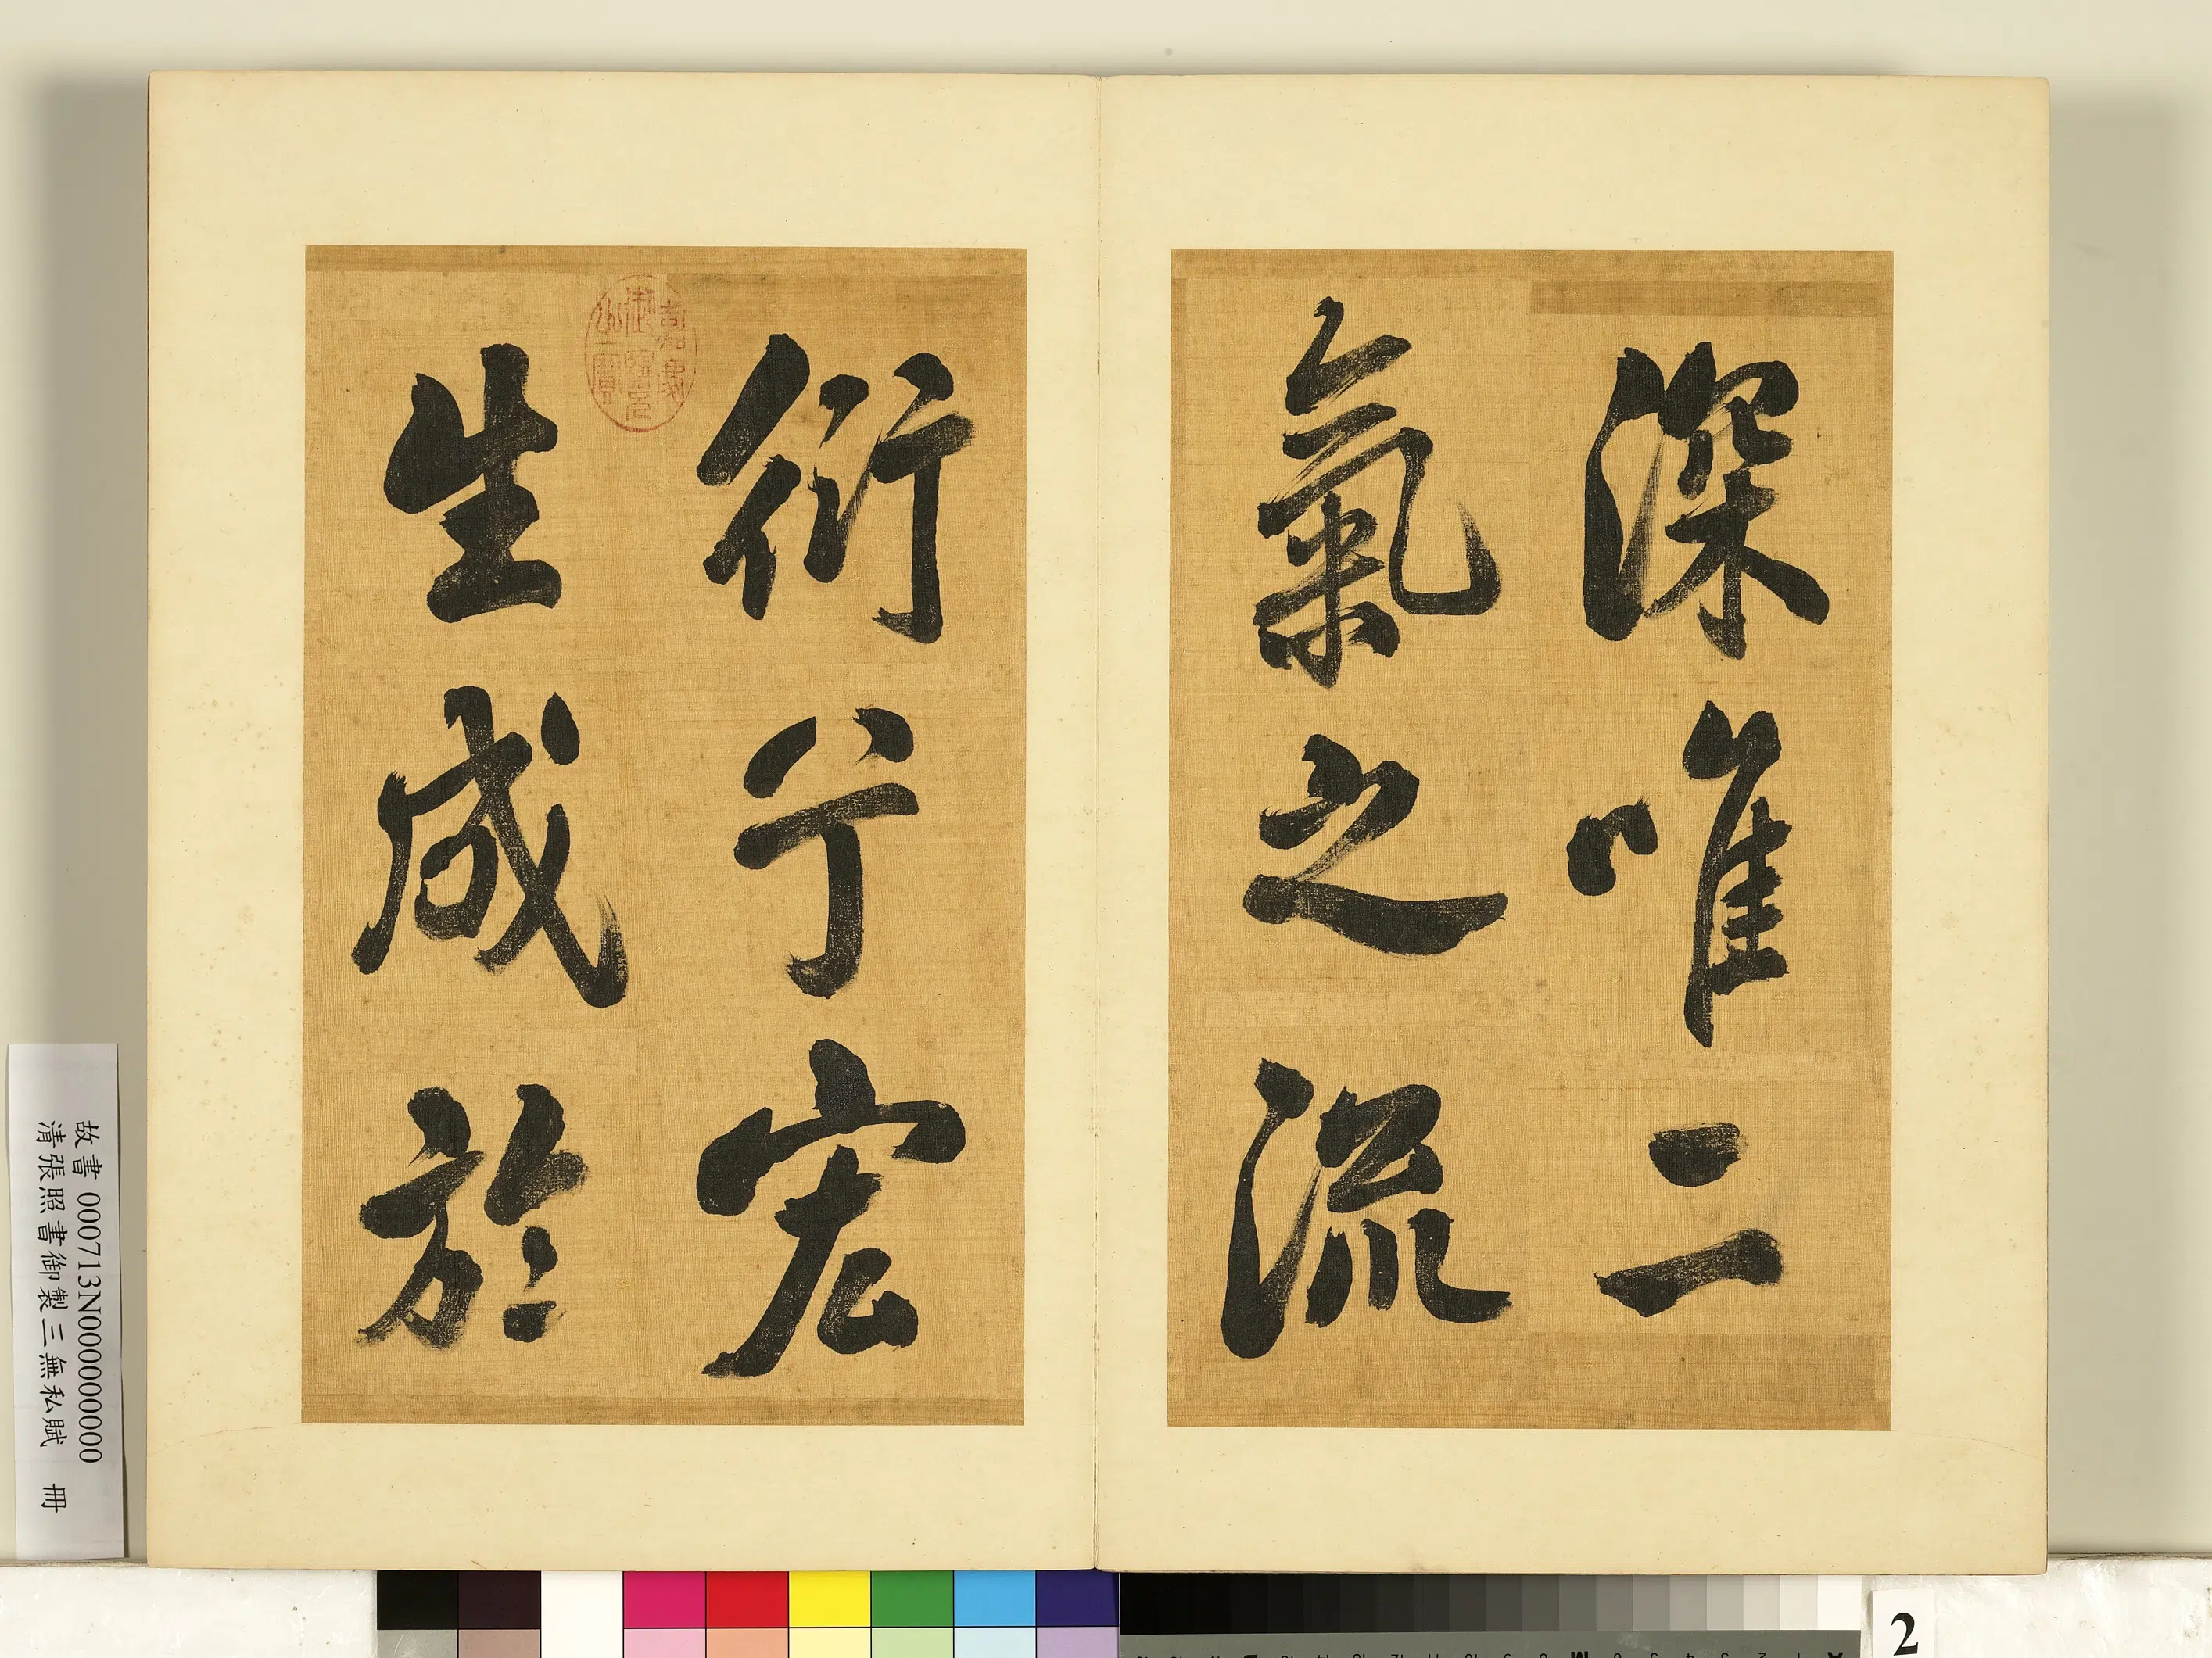 深唯二
氣之流
衍兮宏
生成於
嘉慶
御覽
之寶
故書 000713N000000000
清張照書御製三無私賦 冊
2